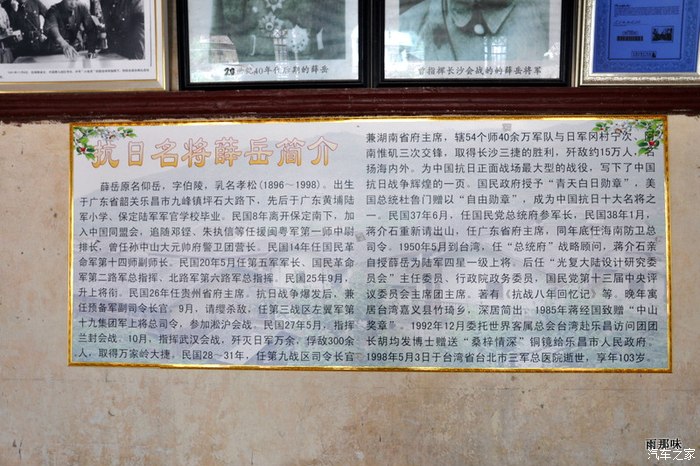 20世纪40年代后期的薛岳
曾指挥长沙会战的的薛岳将军
抗日名将薛岳简介
薛岳原名仰岳，字伯陵，乳名孝松(1896～1998)。出生
于广东省韶关乐昌市九峰镇坪石大路下，先后于广东黄埔陆
军小学、保定陆军军官学校毕业。民国8年离开保定南下，加
入中国同盟会，追随邓铿、朱执信等任援闽粤军第一师中尉
排长，曾任孙中山大元帅府警卫团营长。民国14年任国民革
命军第十四师副师长。民国20年5月任第五军军长、国民革命
军第二路军总指挥、北路军第六路军总指挥。民国25年9月，
升上将衔。民国26年任贵州省府主席。抗日战争爆发后，兼
任预备军副司令长官。9月，请缨杀敌，任第三战区左翼军第
十九集团军上将总司令，参加淞沪会战。民国27年5月，指挥
兰封会战。10月，指挥武汉会战，歼灭日军万余，俘敌300余
人，取得万家岭大捷。民国28～31年，任第九战区司令长官
兼湖南省府主席，辖54个师40余万军队与日军冈村宁次、阿
南惟矶三次交锋，取得长沙三捷的胜利，歼敌约15万人，名
扬海内外。为中国抗日正面战场最大型的战役，写下了中国
抗日战争辉煌的一页。国民政府授予“青天白日勋章”，美
国总统杜鲁门赠以“自由勋章”，成为中国抗日十大名将之
一。民国37年6月，任国民党总统府参军长，民国38年1月，
蒋介石重新请出山，任广东省府主席，同年底任海南防卫总
司令。1950年5月到台湾，任“总统府”战略顾问，蒋介石亲
自授薛岳为陆军四星一级上将。后任“光复大陆设计研究委
员会”主任委员、行政院政务委员，国民党第十三届中央评
议委员会主席团主席。著有《抗战八年回忆记》等。晚年寓
居台湾嘉义县竹琦乡，深居简出，1985年蒋经国致赠“中山
奖章”。1992年12月委托世界客属总会台湾赴乐昌访问团团
长胡均发博士赠送“桑梓情深”铜镜给乐昌市人民政府。
1998年5月3日于台湾省台北市三军总医院逝世，享年103岁。
雨那味
汽车之家